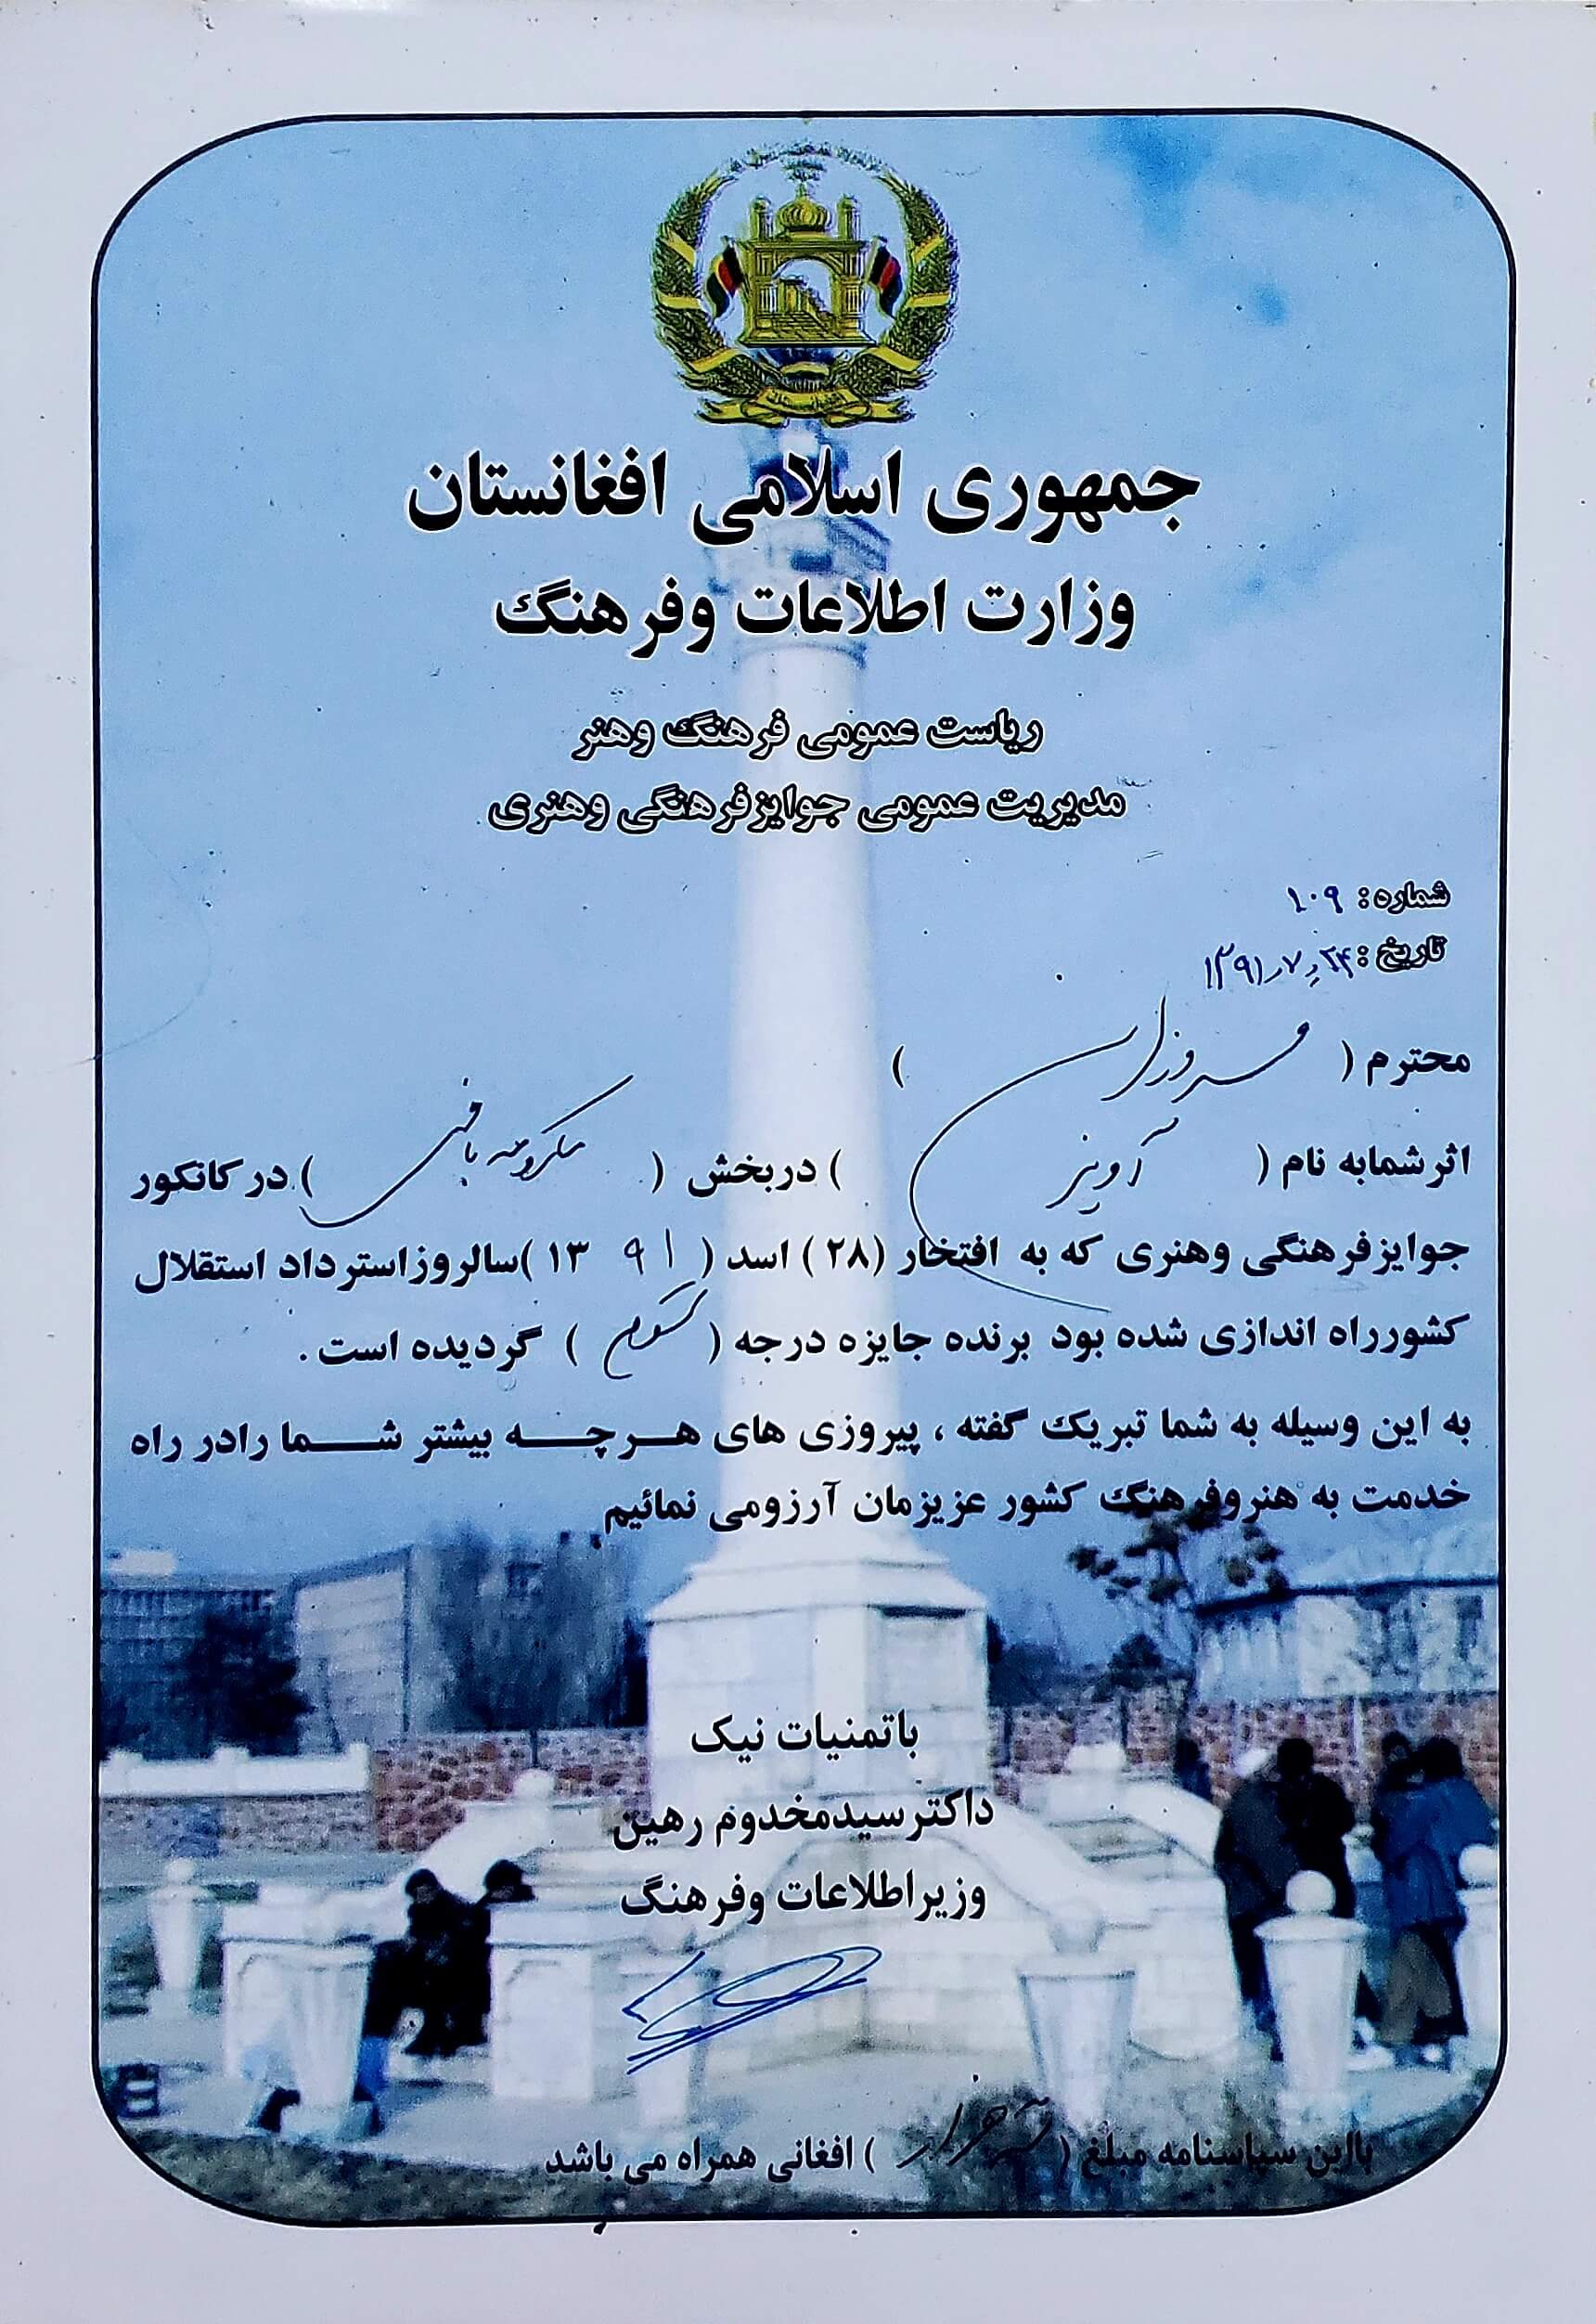 جمهوری اسلامی افغانستان
وزارت اطلاعات وفرهنگ
ریاست عمومی فرهنگ وهنر
مدیریت عمومی جوایزفرهنگی وهنری
شماره: ۱۰۹
تاریخ: ۲۴ر۷ر۱۳۹۱
محترم ( فروزان )
اثرشمابه نام ( آویز ) دربخش ( مکرومه بافی ) درکانکور
جوایزفرهنگی وهنری که به افتخار (۲۸) اسد ( ۱۳۹۱ )سالروزاسترداد استقلال
کشورراه اندازی شده بود برنده جایزه درجه ( سوم ) گردیده است.
به این وسیله به شما تبریک گفته ، پیروزی های هرچه بیشتر شما رادر راه
خدمت به هنروفرهنگ کشور عزیزمان آرزومی نمائیم
باتمنیات نیک
داکترسیدمخدوم رهین
وزیراطلاعات وفرهنگ
بااین سپاسنامه مبلغ ( هزار ) افغانی همراه می باشد